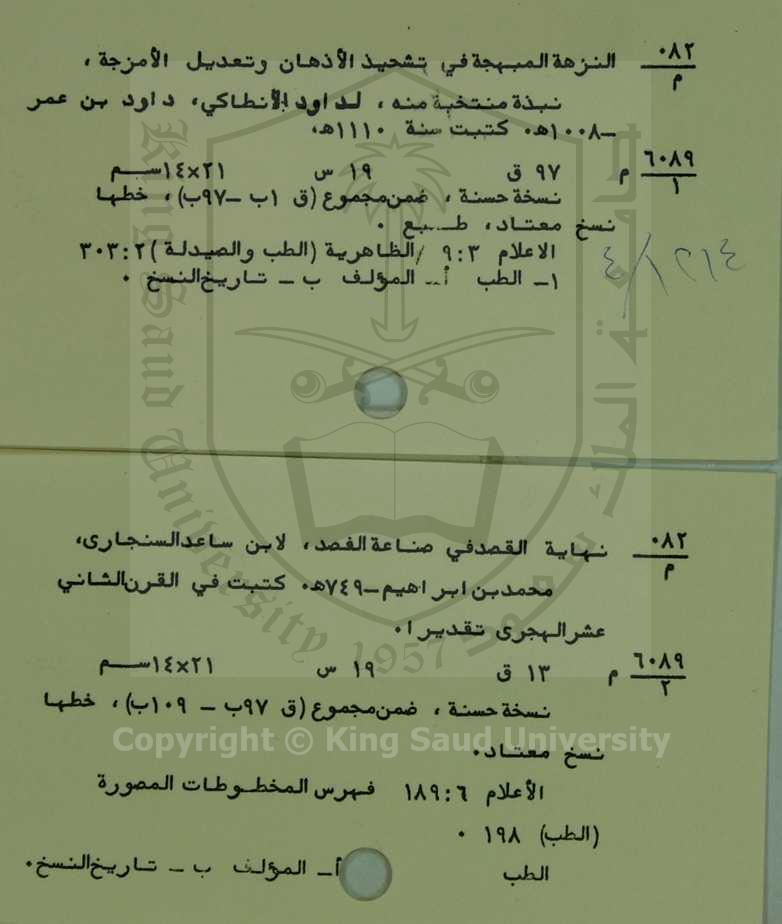 ٠٨٢
م
النزهة المبهجة في تشحيذ الأذهان وتعديل الأمزجة ،
نبذة منتخبة منه ، لداود الأنطاكي، داود بن عمر
-١٠٠٨ه٠ كتبت سنة ١١١٠ه،
٦٠٨٩
١
م ٩٧ ق ١٩ س ٢١×١٤سم
نسخة حسنة ، ضمن مجموع (ق ١ب -٩٧ب) ، خطها
نسخ معتاد، طبع ٠
الاعلام ٩:٣ /الظاهرية (الطب والصيدلة) ٣٠٣:٢
١- الطب أ- المؤلف ب - تاريخ النسخ ٠
٠٨٢
م
نهاية القصد في صناعة الفصد، لابن ساعد السنجارى،
محمد بن ابراهيم -٧٤٩ه٠ كتبت في القرن الثاني
عشر الهجرى تقديرا ٠
٦٠٨٩
٢
م ١٣ ق ١٩ س ٢١×١٤سم
نسخة حسنة ، ضمن مجموع (ق ٩٧ب - ١٠٩ب) ، خطها
نسخ معتاد٠
الأعلام ١٨٩:٦ فهرس المخطوطات المصورة
(الطب) ١٩٨ ٠
الطب أ- المؤلف ب - تاريخ النسخ٠
King Saud University 1957
Copyright © King Saud University